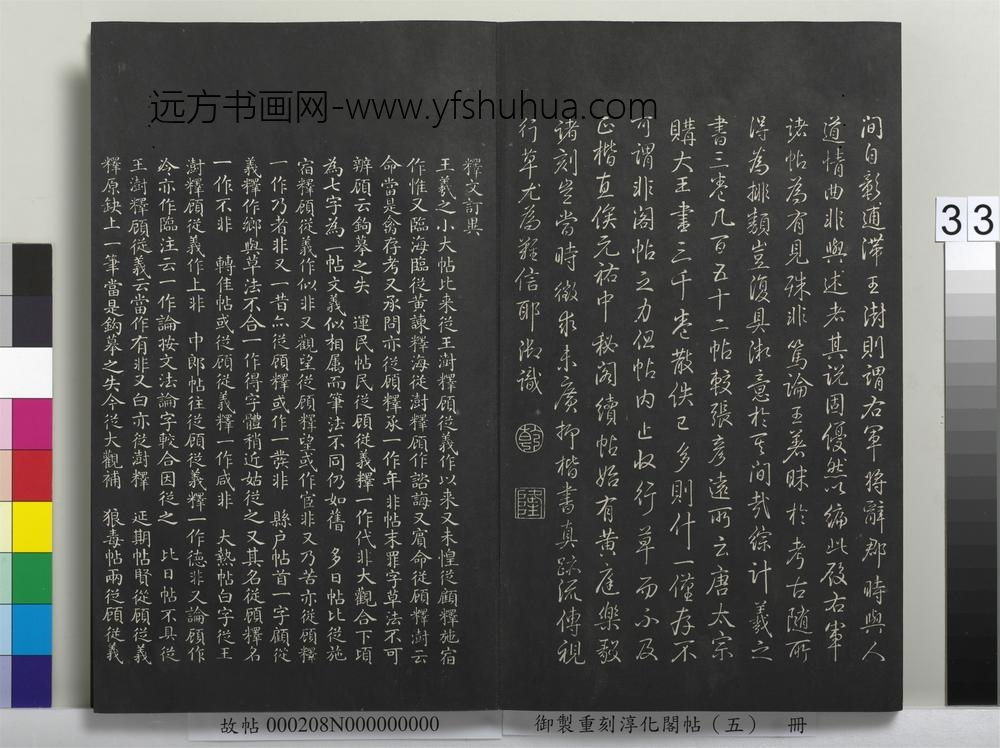 远方书画网-www.yfshuhua.com
間自彰通滯王澍則謂右軍將辭郡時與人
道情曲非與述老其說固優然以編此段右軍
諸帖為有見殊非篤論王著昧於考古隨所
得為排類豈復具深意於其間哉綜計羲之
書三卷凡百五十二帖較張彥遠所云唐太宗
購大王書三千卷散佚已多則什一僅存不
可謂非閣帖之力但帖內止收行草而不及
正楷直俟元祐中秘閣續帖始有黃庭樂毅
諸刻豈當時徵求未廣抑楷書真跡流傳視
行草尤為難信耶御識
乾
隆
釋文訂異
王羲之小大帖比來從王澍釋顧從義作以來又未惶從顧釋施宿
作惟又臨海臨從黃諫釋海從澍釋顧作諮誨又育命從顧釋澍云
命當是俞存考又承問亦從顧釋承一作年非帖末罪字草法不可
辨顧云鉤摹之失 運民帖民從顧從義釋一作代非大觀合下頃
為七字為一帖文義似相屬而筆法不同仍如舊 多日帖比從施
宿釋顧從義作似非又觀望從顧釋望或作宦非又乃苦亦從顧釋
一作乃者非又一昔亦從顧釋或作一營非 縣戶帖首一字顧從
義釋作鄉與草法不合一作得字體稍近姑從之又其名從顧釋名
一作不非 轉佳帖或從顧從義釋一作咸非 大熱帖白字從王
澍釋顧從義作上非 中郎帖往從顧從義釋一作德非又論顧作
令亦作臨注云一作論按文法論字較合因從之 比日帖不具從
王澍釋顧從義云當作有非又白亦從澍釋 延期帖賢從顧從義
釋原缺上一筆當是鉤摹之失今從大觀補 狼毒帖兩從顧從義
33
故帖 000208N000000000
御製重刻淳化閣帖（五） 冊